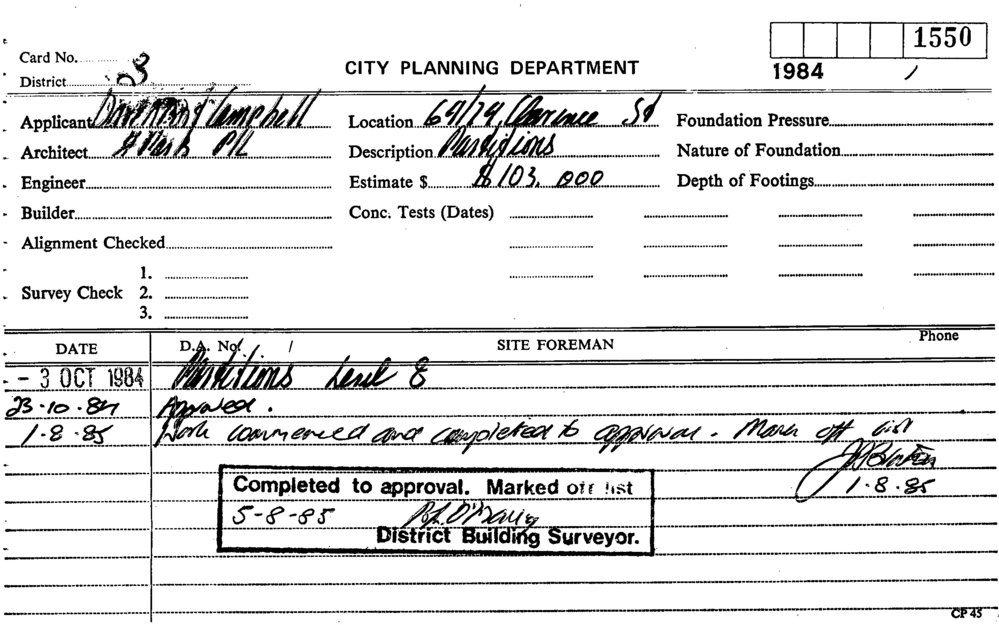 1550
Card No.
CITY PLANNING DEPARTMENT
1984 /
District 3
Applicant Davenport Campbell
Location 69/79, Clarence St
Foundation Pressure
Architect & Ptnrs P/L
Description Partitions
Nature of Foundation
Engineer
Estimate $ $103,000
Depth of Footings
Builder
Conc. Tests (Dates)
Alignment Checked
1.
Survey Check 2.
3.
DATE
D.A. No. /
SITE FOREMAN
Phone
- 3 OCT 1984 Partitions Level 8
23.10.84 Approved.
1.8.85 Work commenced and completed to approval. Mark off list
1.8.85
Completed to approval. Marked off list
5-8-85
District Building Surveyor.
CP 45